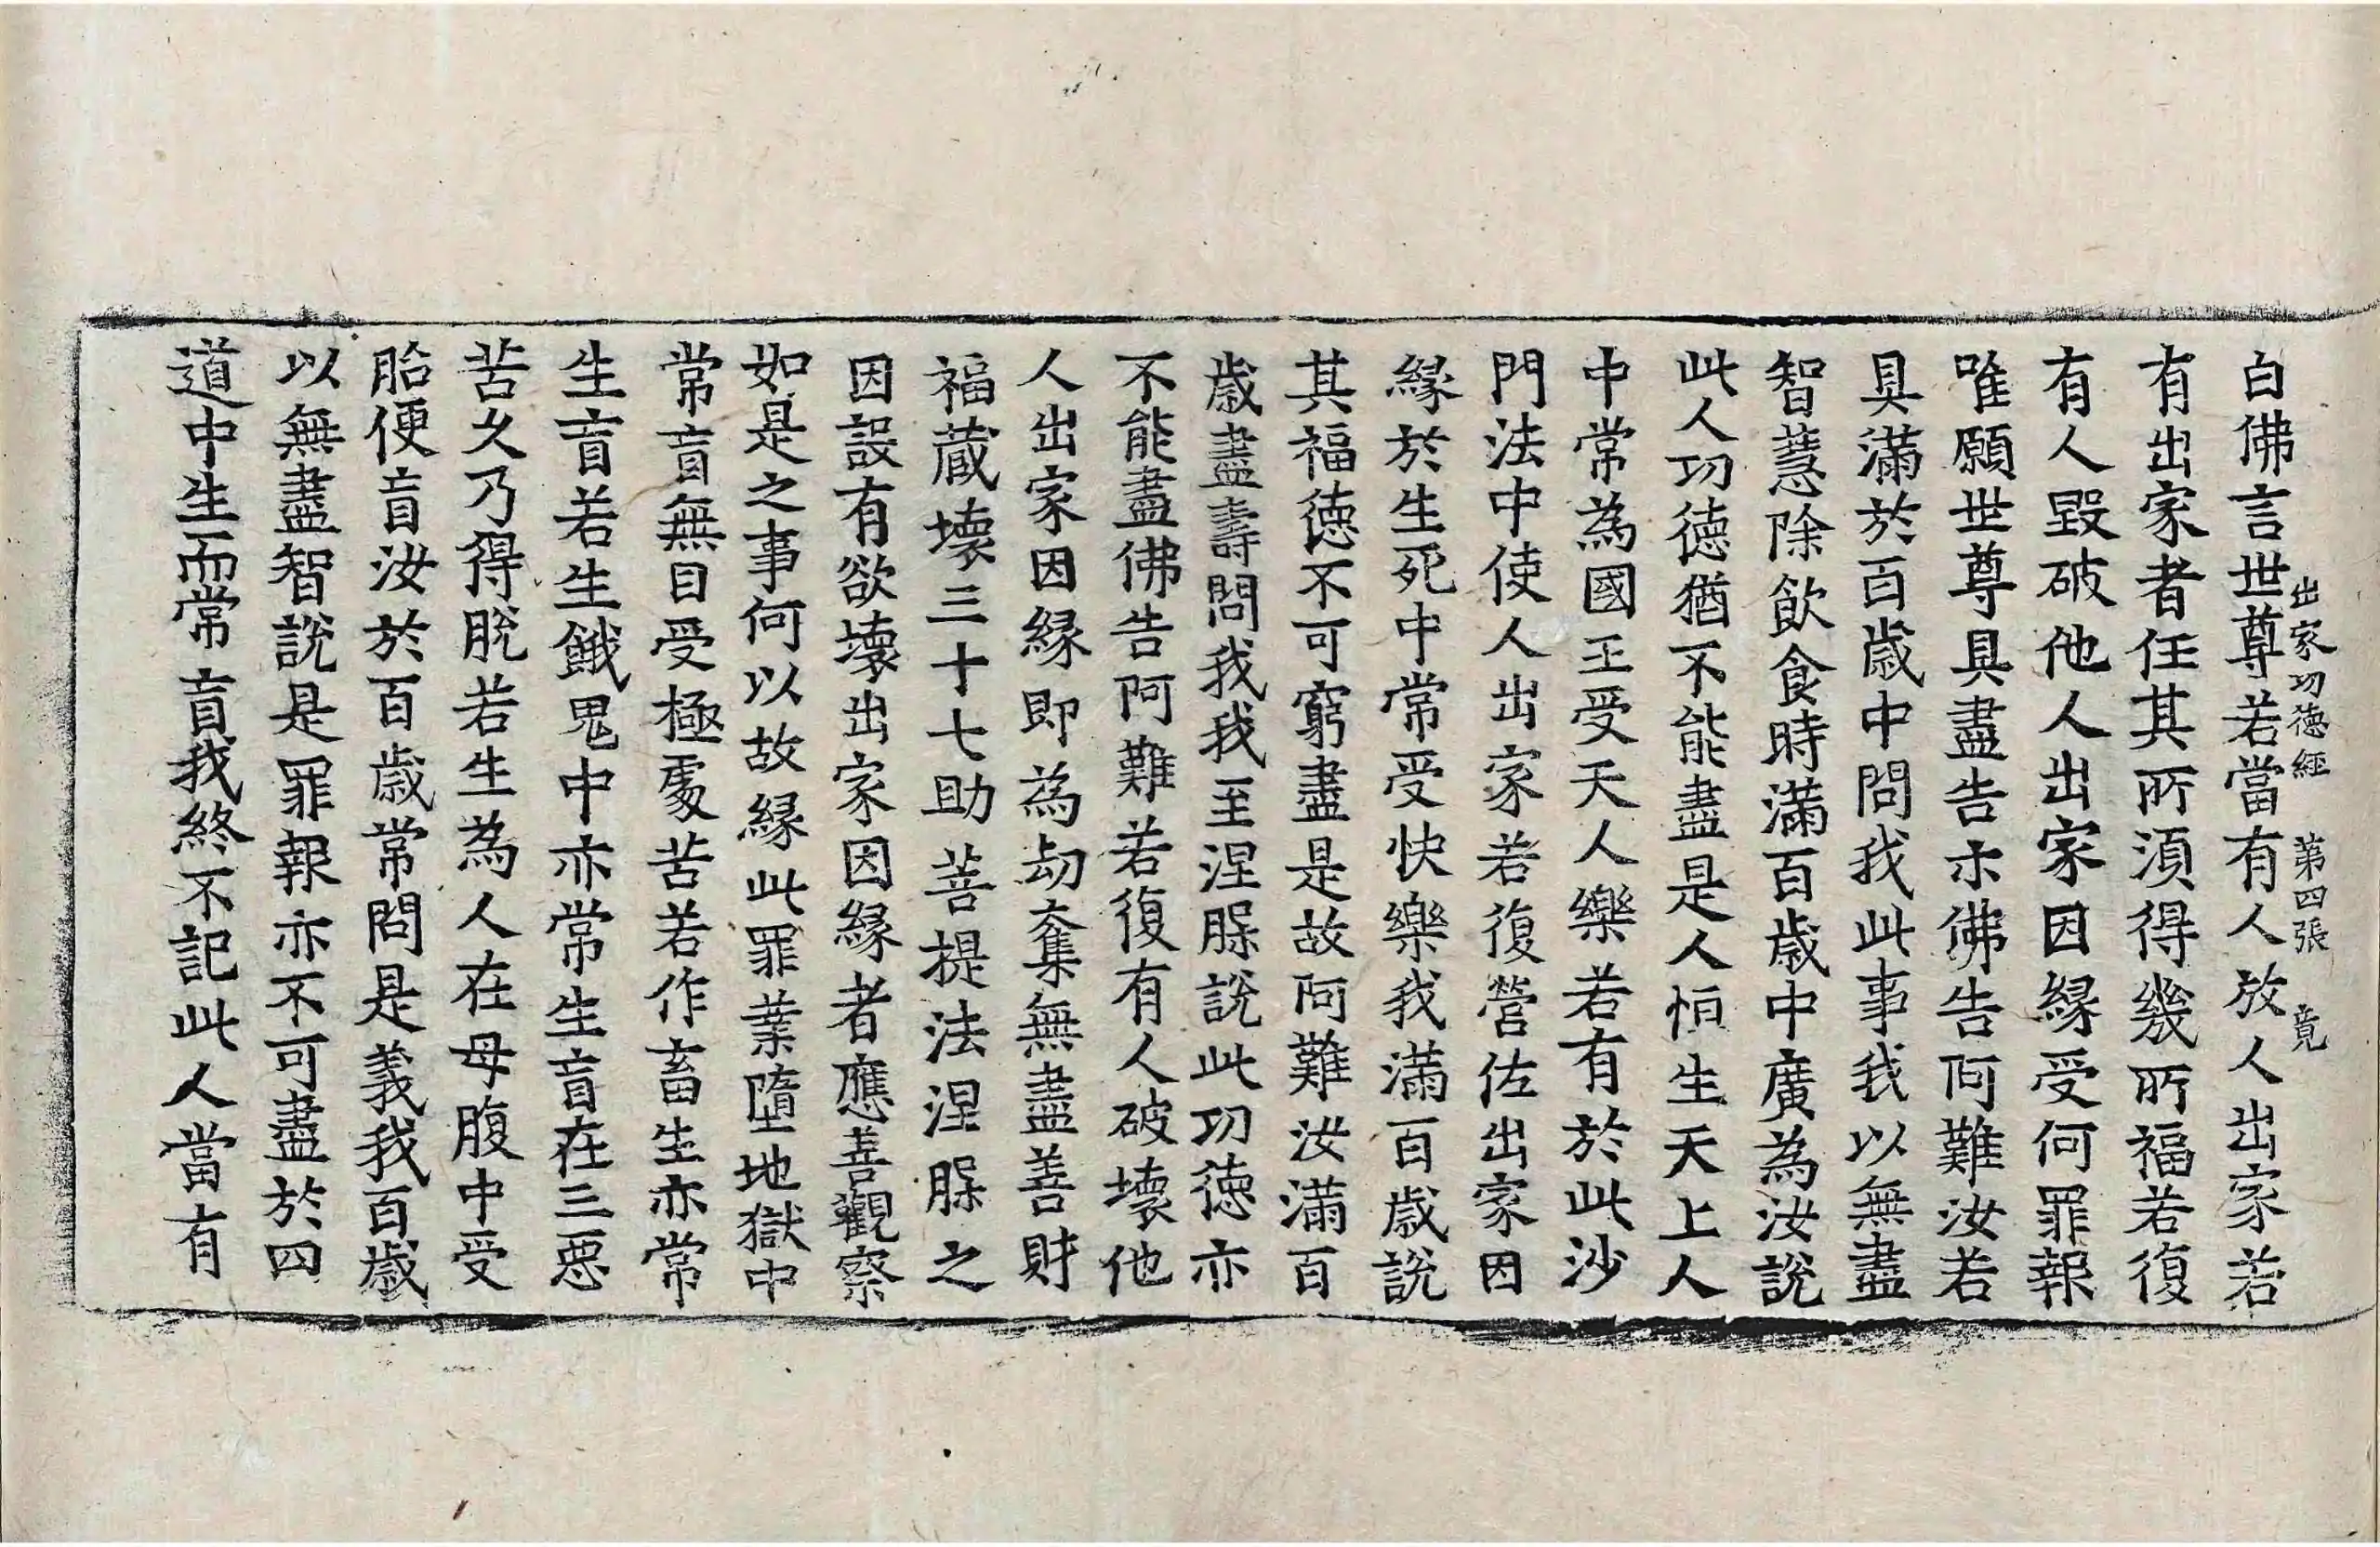 出家功德經 第四張 竟
白佛言世尊若當有人放人出家若
有出家者任其所湏得幾所福若復
有人毀破他人出家因縁受何罪報
唯願世尊具盡告示佛告阿難汝若
具滿於百歲中問我此事我以無盡
智慧除飲食時滿百歲中廣為汝說
此人功德猶不能盡是人恒生天上人
中常為國王受天人樂若有於此沙
門法中使人出家若復營佐出家因
縁於生死中常受快樂我滿百歲說
其福德不可窮盡是故阿難汝滿百
歲盡壽問我我至涅槃說此功德亦
不能盡佛告阿難若復有人破壞他
人出家因縁即為劫奪無盡善財
福藏壞三十七助菩提法涅槃之
因設有欲壞出家因縁者應善觀察
如是之事何以故縁此罪業墮地獄中
常盲無目受極處苦若作畜生亦常
生盲若生餓鬼中亦常生盲在三惡
苦久乃得脫若生為人在母腹中受
胎便盲汝於百歲常問是義我百歲
以無盡智說是罪報亦不可盡於四
道中生而常盲我終不記此人當有